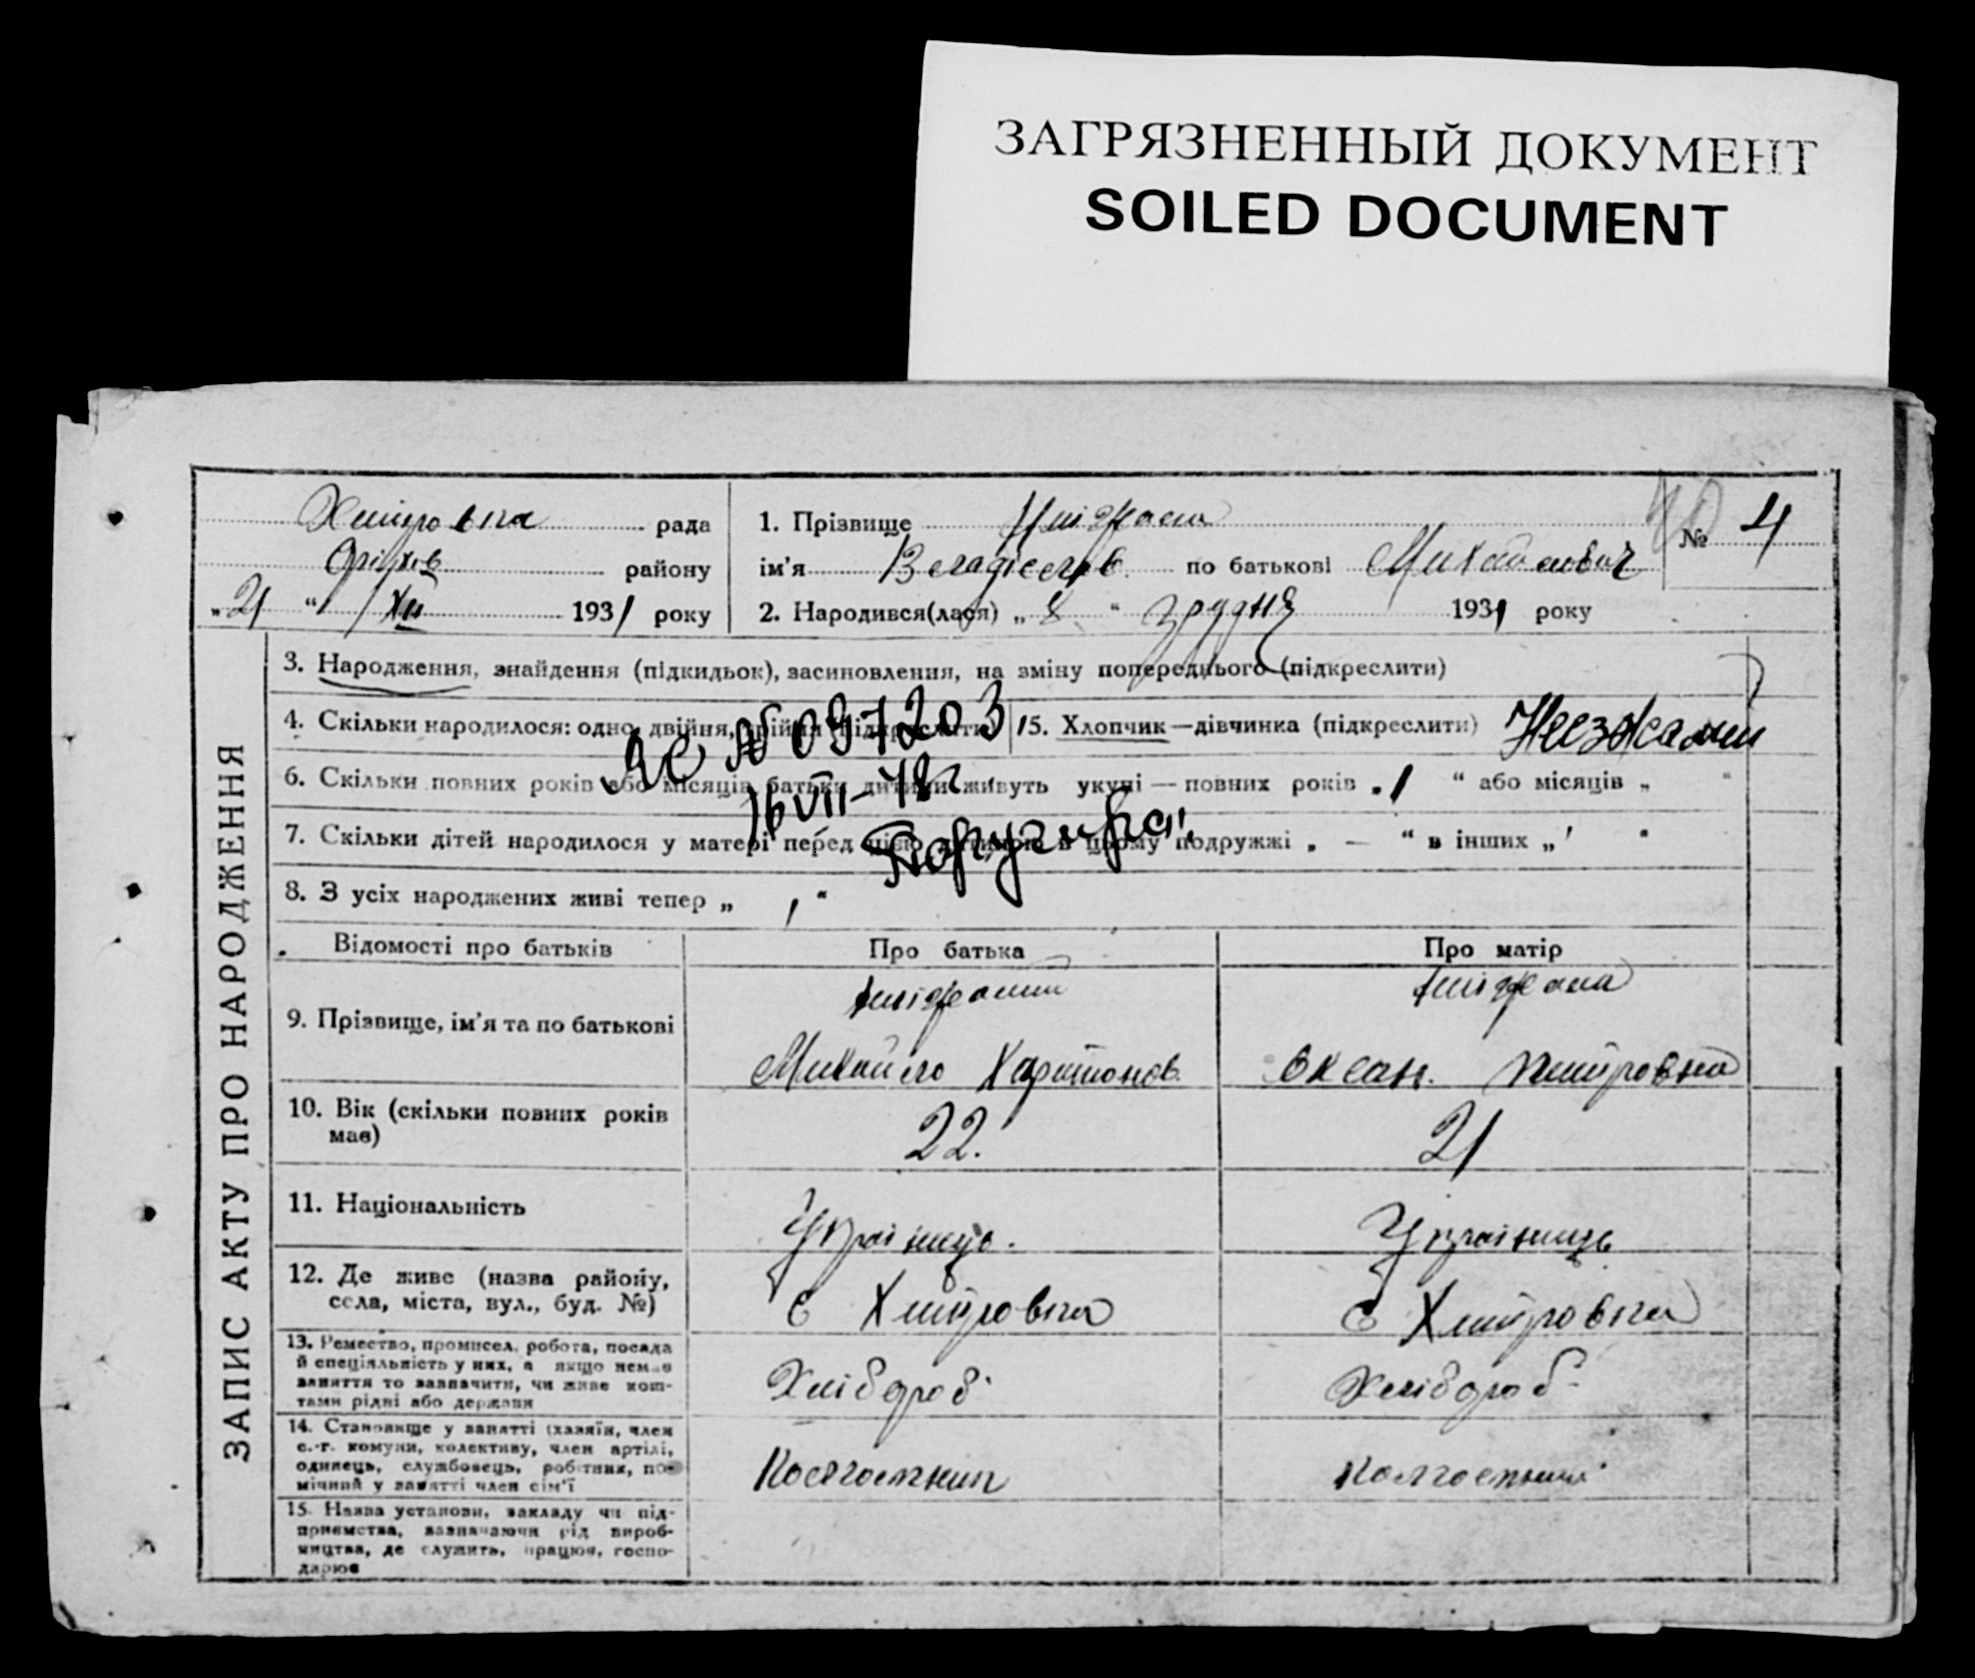 ЗАГРЯЗНЕННЫЙ ДОКУМЕНТ
SOILED DOCUMENT
ЗАПИС АКТУ ПРО НАРОДЖЕННЯ
рада
району
„21“ XII 1931 року
1. Прізвище
№ 4
ім'я по батькові Михайлович
2. Народився(лася) „8“ грудня 1931 року
3. Народження, знайдення (підкидьок), засиновлення, на зміну попереднього (підкреслити)
4. Скільки народилося: одно, двійня, трійня (підкреслити)
5. Хлопчик—дівчинка (підкреслити)
6. Скільки повних років або місяців батьки дитини живуть укупі — повних років „1“ або місяців „ “
7. Скільки дітей народилося у матері перед цією дитиною в цьому подружжі „ — “ в інших „ “
8. З усіх народжених живі тепер „ “
16 VII-
Відомості про батьків
Про батька
Про матір
9. Прізвище, ім'я та по батькові
Михайло Харитонов.
10. Вік (скільки повних років
має)
22.
21
11. Національність
Українець.
Українець
12. Де живе (назва району,
села, міста, вул., буд. №)
с
с
13. Ремество, промисел, робота, посада
й спеціяльність у них, а якщо немає
заняття то зазначити, чи живе кош-
тами рідні або держави
Хлібороб
Хлібороб
14. Становище у занятті (хазяїн, член
с.-г. комуни, колективу, член артілі,
одинець, службовець, робітник, по-
мічний у занятті член сім'ї
Колгоспник
Колгоспник
15. Назва установи, закладу чи під-
приємства, зазначаючи рід вироб-
ництва, де служить, працює, госпо-
дарює